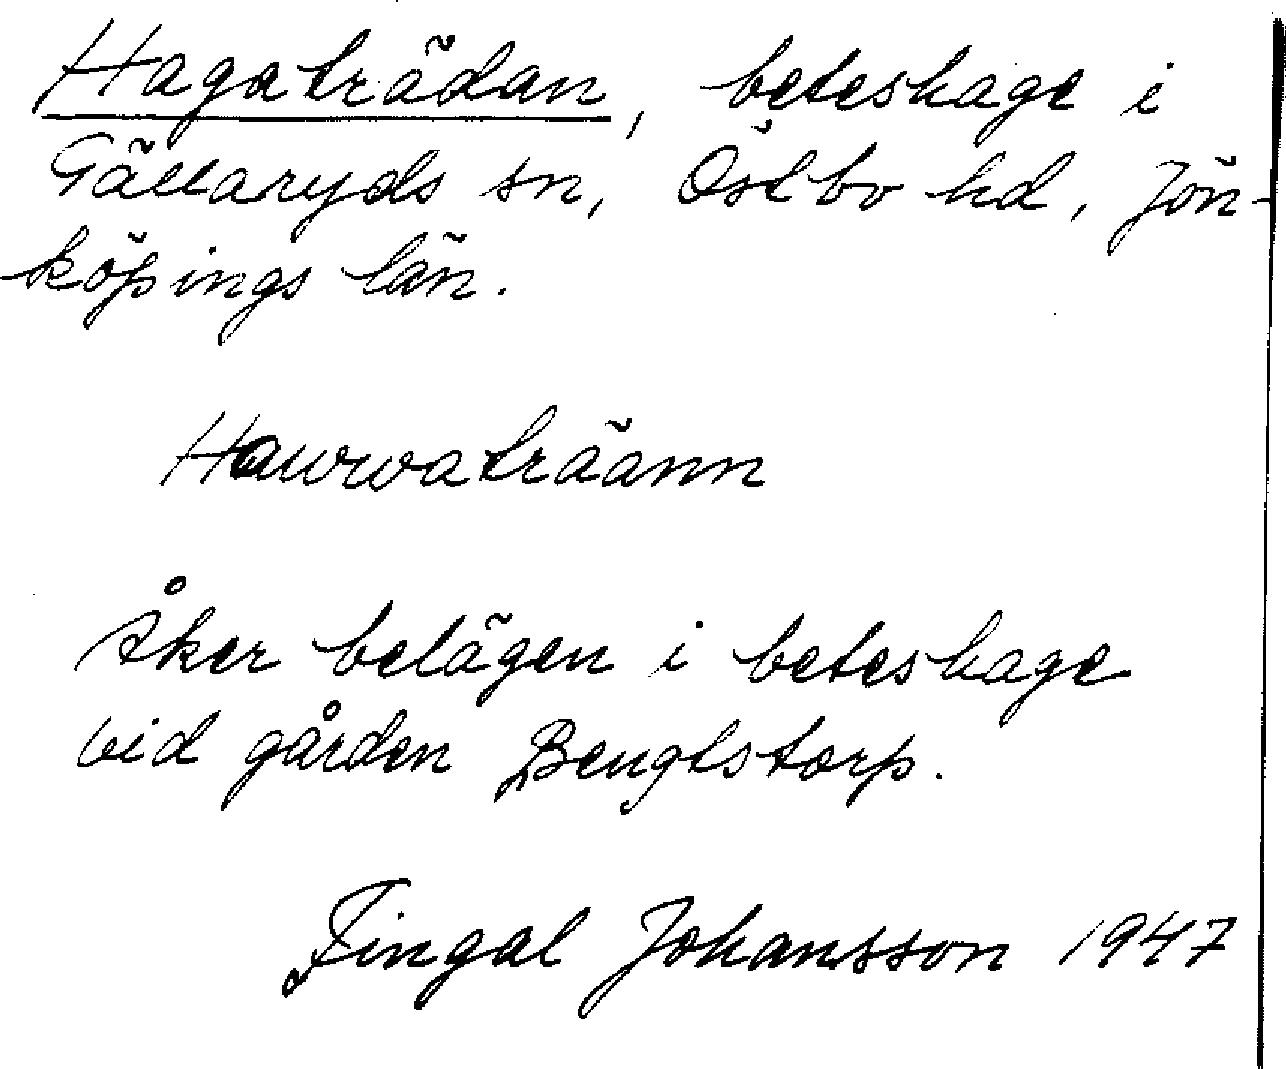 Hagaträdan, beteshage i
Gällaryds sn, Östbo hd, Jön-
köpings län.
Hauwwaträann
Åker belägen i beteshage
vid gården Bengtstorp.
Fingal Johansson 1947